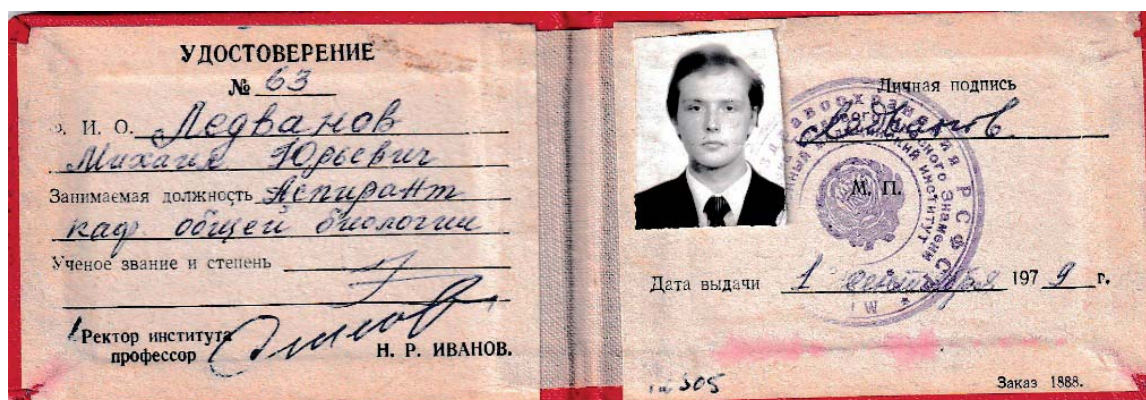 УДОСТОВЕРЕНИЕ
№ 63
Ф. И. О. Ледванов
Михаил Юрьевич
Занимаемая должность Аспирант
каф. общей биологии
Ученое звание и степень
Ректор института
профессор
Н. Р. ИВАНОВ.
Личная подпись
Ледванов
М. П.
Дата выдачи 1 сентября 1979 г.
305
Заказ 1888.